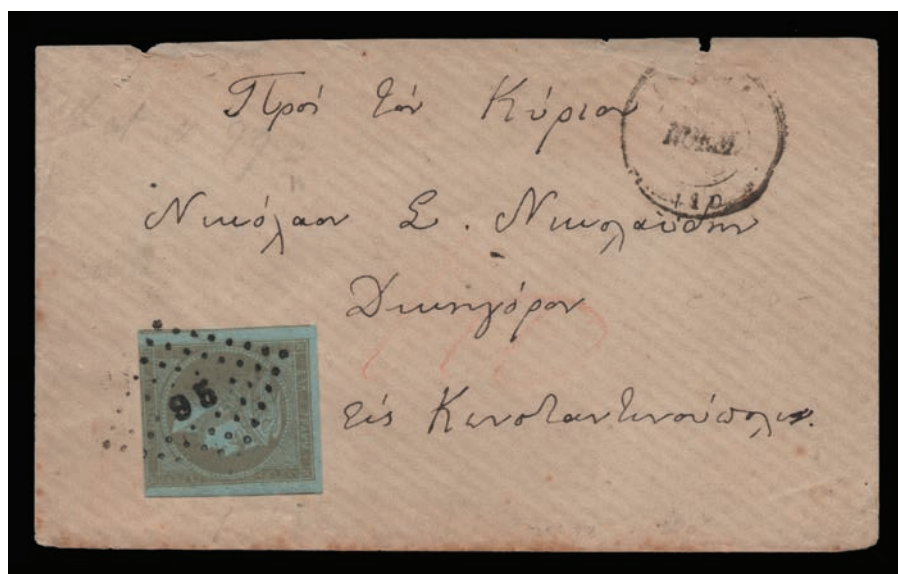 Πρὸς τὸν Κύριον
Νικόλαον Σ. Νικολαΐδην
Δικηγόρον
εἰς Κωνσταντινούπολιν.
95